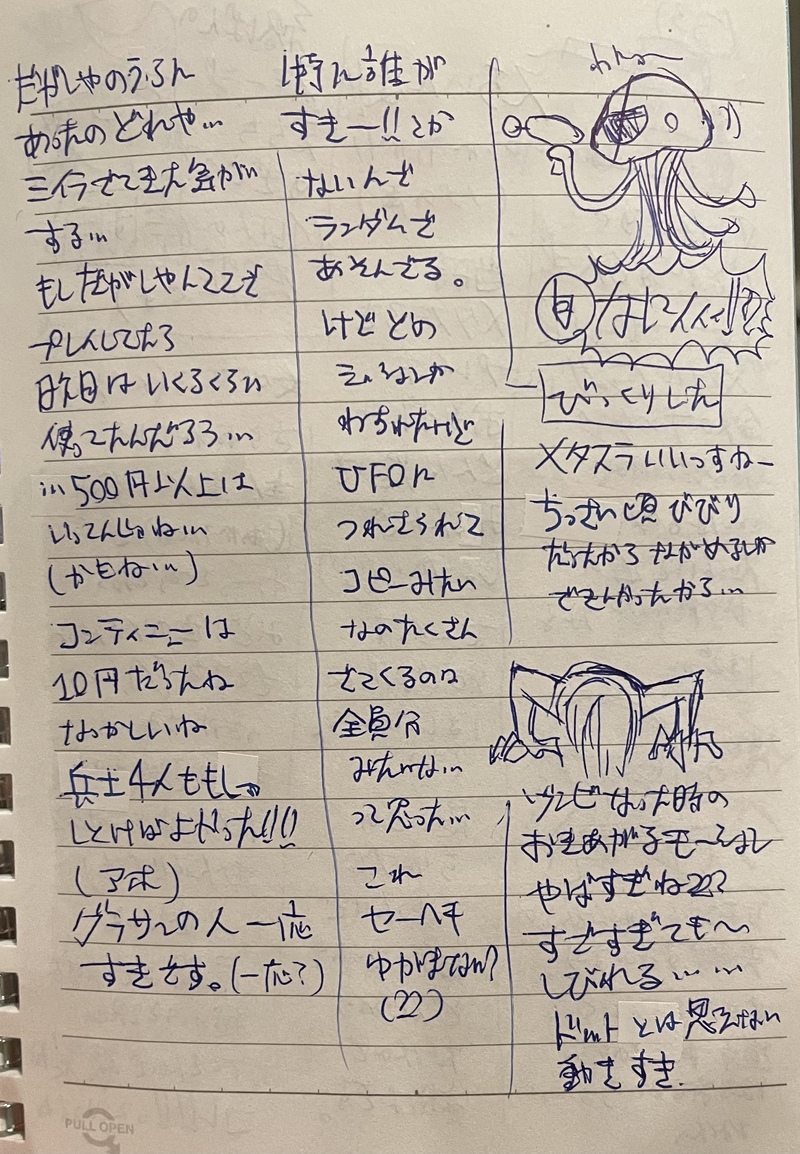 だがしやのうらん
あったの どれや…
三イ今さてきた気がい
する…
もしだがしやんココで
プレイしてたら
昨日は いくるくらい
使ってたんだろろ…
…500円以上は
いってんじゃね…
(かもね…)
コンティニューは
10円だったね
なつかしいね
兵士4人ももしゃ
しとけばよかった!!!
(アホ)
グラサンの人 一応
すきです。(一応?)
特に誰が
すきー!!とか
ないんで
ランダムで
あそんでる。
けど どの
わすれたけど
UFOに
つれさられて
コピーみたい
なのたくさん
でてくるのは
全員分
みたいな…
って思った…
これ
セーヘキ
ゆがまない?
(??)
わたしー
自
なにィィィ!!??
びっくりした
メタスラいいっすねー
ちっさい頃 びびり
だったから ながめるしか
できんかったから…
ゾンビなった時の
おきあがるモーション
やばすぎね???
すごすぎても〜
しびれる… …
ドットとは思えない
動きすき.
PULL OPEN